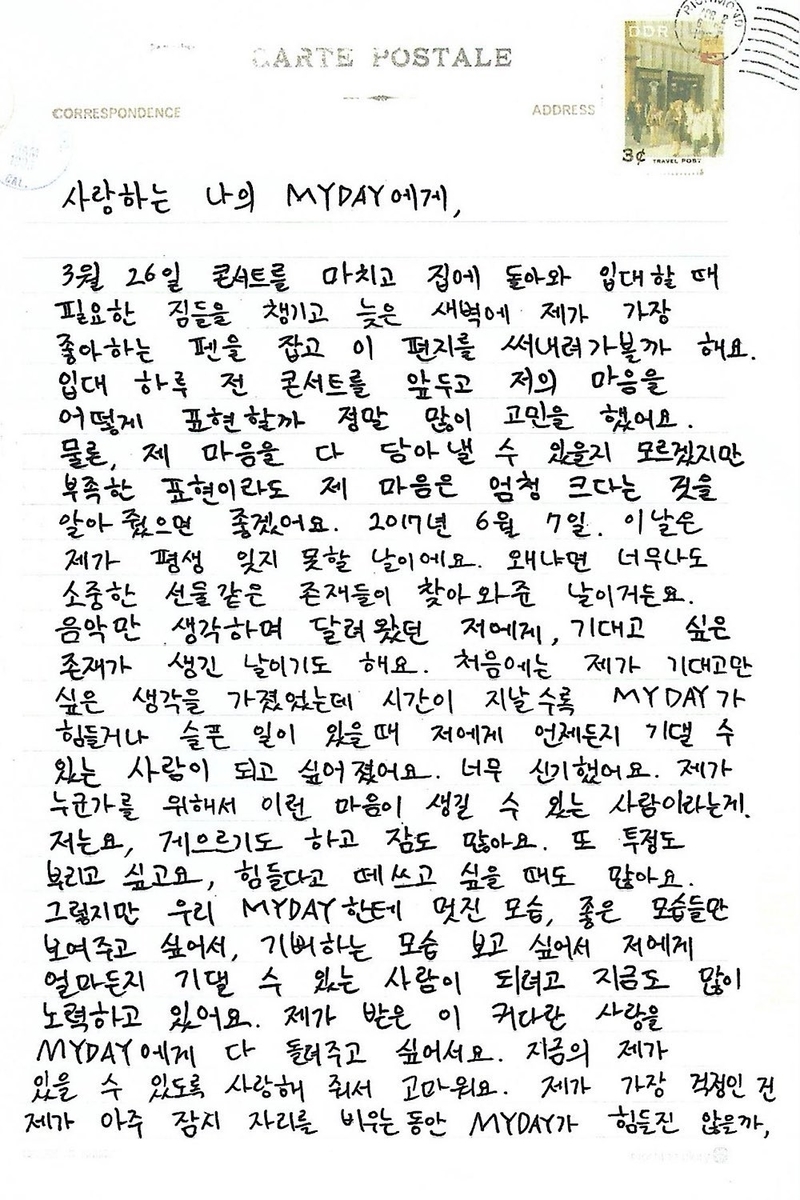 CARTE POSTALE
CORRESPONDENCE
ADDRESS
RICHMOND
DDR
3¢ TRAVEL POST
CAL.
사랑하는 나의 MYDAY에게,
3월 26일 콘서트를 마치고 집에 돌아와 입대할 때
필요한 짐들을 챙기고 늦은 새벽에 제가 가장
좋아하는 펜을 잡고 이 편지를 써내려가볼까 해요.
입대 하루 전 콘서트를 앞두고 저의 마음을
어떻게 표현할까 정말 많이 고민을 했어요.
물론, 제 마음을 다 담아낼 수 있을지 모르겠지만
부족한 표현이라도 제 마음은 엄청 크다는 것을
알아줬으면 좋겠어요. 2017년 6월 7일. 이날은
제가 평생 잊지 못할 날이에요. 왜냐면 너무나도
소중한 선물같은 존재들이 찾아와준 날이거든요.
음악만 생각하며 달려왔던 저에게, 기대고 싶은
존재가 생긴 날이기도 해요. 처음에는 제가 기대고만
싶은 생각을 가졌었는데 시간이 지날수록 MYDAY가
힘들거나 슬픈 일이 있을때 저에게 언제든지 기댈 수
있는 사람이 되고 싶어졌어요. 너무 신기했어요. 제가
누군가를 위해서 이런 마음이 생길 수 있는 사람이라는게.
저는요, 게으르기도 하고 잠도 많아요. 또 투정도
부리고 싶고요, 힘들다고 떼쓰고 싶을 때도 많아요.
그렇지만 우리 MYDAY한테 멋진 모습, 좋은 모습들만
보여주고 싶어서, 기뻐하는 모습 보고 싶어서 저에게
얼마든지 기댈 수 있는 사람이 되려고 지금도 많이
노력하고 있어요. 제가 받은 이 커다란 사랑을
MYDAY에게 다 돌려주고 싶어서요. 지금의 제가
있을 수 있도록 사랑해 줘서 고마워요. 제가 가장 걱정인 건
제가 아주 잠시 자리를 비우는동안 MYDAY가 힘들진 않을까,